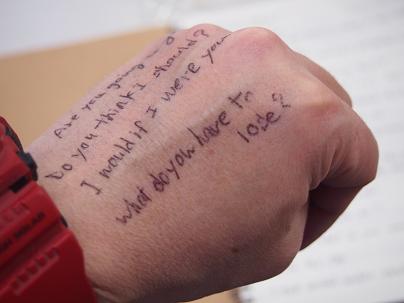 Are you going
Do you think I should?
I would if I were you
what do you have to
lose?